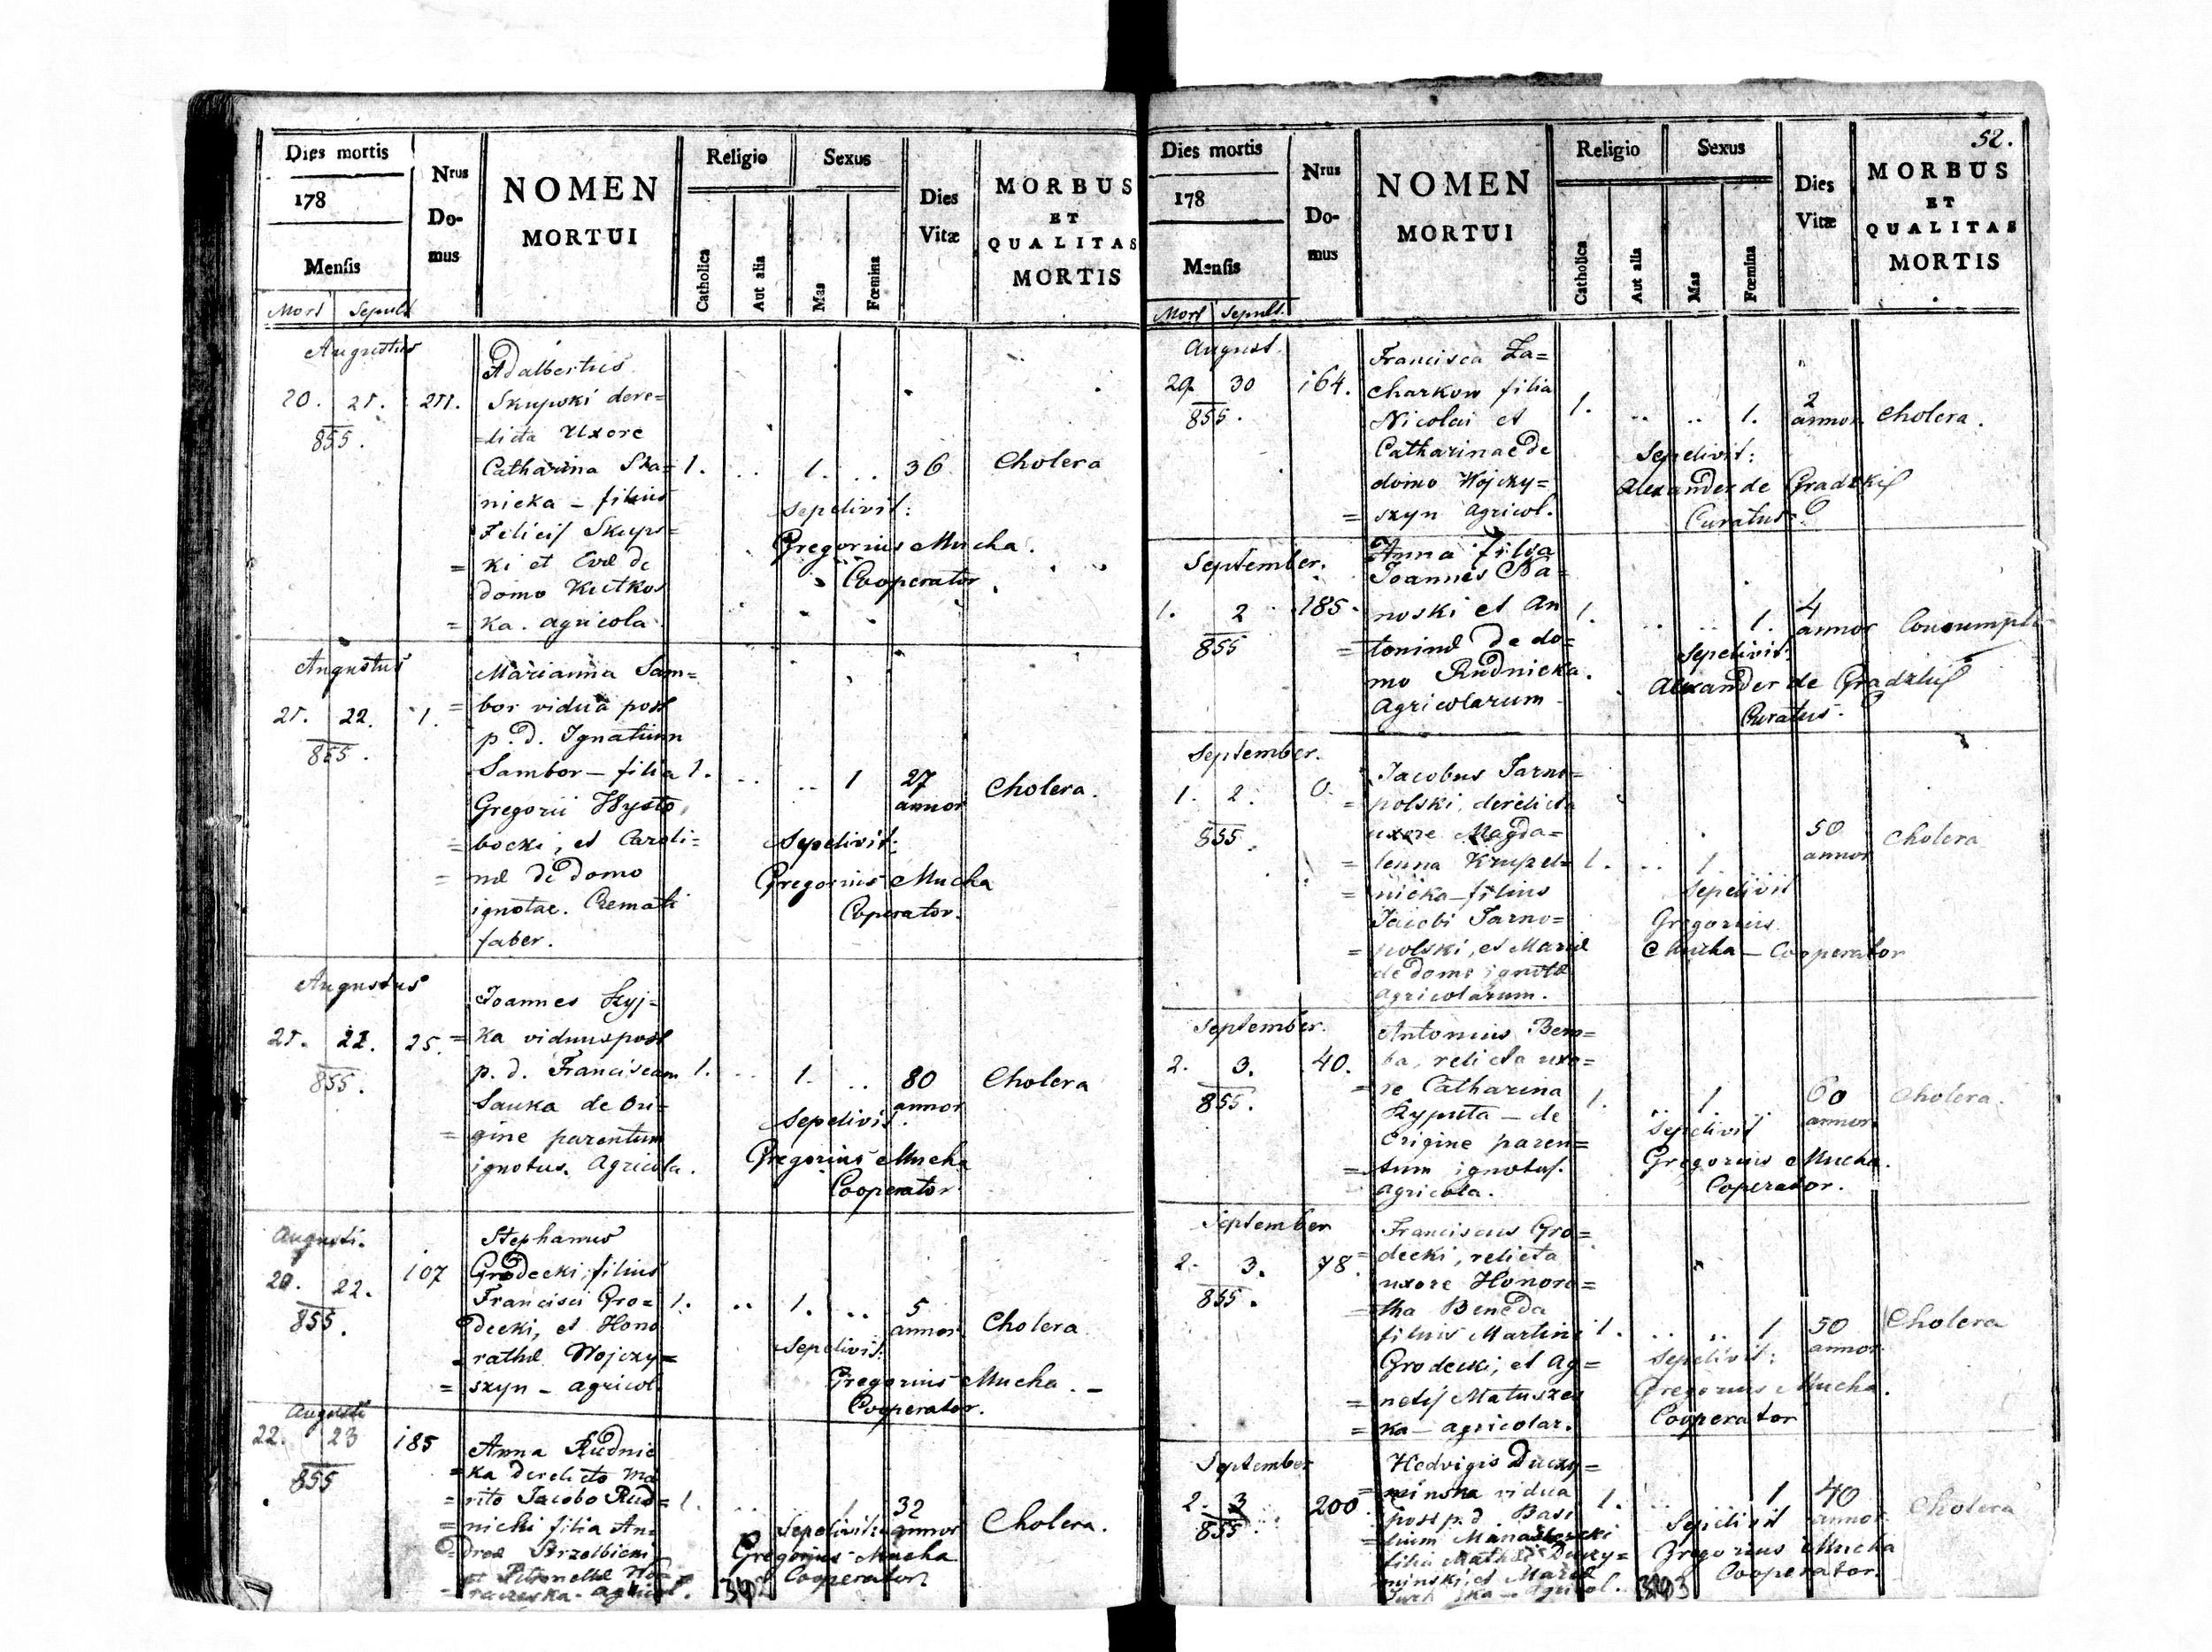 Dies mortis
178
Mensis
Mort Sepult
Nrus
Do-
mus
NOMEN
MORTUI
Religio
Catholica
Aut alia
Sexus
Mas
Fœmina
Dies
Vitæ
MORBUS
ET
QUALITAS
MORTIS
Augustus
20. 21. 211.
855.
Adalbertus
Skupski dere=
=licta Uxore
Catharina Ska=
nicka – filius
Felicis Skups=
= ki et Evæ de
domo Kutkos
= ka. agricola.
1. .. 1. .. 36 Cholera
Sepelivit:
Gregorius Mucha.
Cooperator.
Augustus
21. 22. 1.
855.
Marianna Sam=
= bor vidua post
p. d. Ignatium
Sambor – filia
Gregorii Wysto
= bocki, et Caroli=
= næ de domo
ignotae. Cremati
faber.
1. .. .. 1 27
annor
Cholera.
Sepelivit:
Gregorius Mucha
Coperator.
Augustus
21. 22. 25.
855.
Joannes Szyj=
= ka viduus post
p. d. Franciscam
Sauka de Ori=
= gine parentum
ignotus. Agricola.
1. .. 1. .. 80
annor
Cholera
Sepelivit.
Gregorius Mucha
Cooperator.
Augusti.
20. 22. 107
855.
Stephanus
Grodecki, filius
Francisci Gro=
decki, et Hono
= rathæ Wojczy=
= szyn – agricol.
1. .. 1. .. 5
annor
Cholera
Sepelivit:
Gregorius Mucha. –
Cooperator.
Augusti
22. 23 185
855
Anna Rudnic
= ka derelicto ma
= rito Jacobo Rud=
= nicki filia An=
= dreæ Strzelbicki
et Petronellæ
1. .. 1 32
annor
Cholera.
Sepelivit:
Gregorius Mucha
Cooperator.
342
52.
Dies mortis
178
Mensis
Mort Sepult.
Nrus
Do-
mus
NOMEN
MORTUI
Religio
Catholica
Aut alia
Sexus
Mas
Fœmina
Dies
Vitæ
MORBUS
ET
QUALITAS
MORTIS
August.
29 30 164.
855.
Francisca Za=
charkow filia
Nicolai et
Catharinae de
domo Wojczy=
= szyn agricol.
1. .. .. 1. 2
annor.
Cholera.
Sepelivit:
Alexander de Gradzki
Curatus.
September.
1. 2 185.
855
Anna filia
Joannis Ba=
noski et An
= toninæ de do=
mo Rudnicka.
Agricolarum
1. .. .. 1. 4
annor
Consumpti
Sepelivit.
Alexander de Gradzki
Curatus.
September.
1. 2. 0.
855.
Jacobus Tarno=
= polski, derelicta
uxore Magda=
= lenna Krupel=
= nicka – filius
Jacobi Tarno=
= polski, et Mariæ
de domo ignotæ
agricolarum.
1. .. 1. 50
annor
Cholera
Sepelivit
Gregorius
Mucha – Cooperator
September.
2. 3. 40.
855.
Antonius Bem=
ba, relicta uxo=
= re Catharina
Szyputa – de
Origine paren=
= tum ignotus.
agricola.
1. .. 1 60
annor.
Cholera.
Sepelivit
Gregorius Mucha.
Coperator.
September
2. 3. 78.
855.
Franciscus Gro=
= decki, relicta
uxore Honora=
= tha Beneda
filius Martini
Grodecki, et Ag=
= netis Matuszew
= ka – agricolar.
1. .. .. 1 50
annor.
Cholera
Sepelivit:
Gregorius Mucha.
Cooperator
September
2. 3 200
855.
Hedvigis Duczy=
= minska vidua
post p. d. Basi
= lium
filia Mathæi Duczy=
minski, et Mariæ
agricol.
1. .. 1 40
annor
Cholera
Sepelivit
Gregorius Mucha
Cooperator.